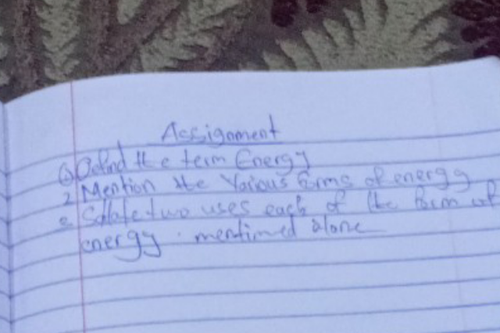 Assignment
① Defind the term Energy
2 Mention the Various forms of energy
State two uses each of the form of
energy. mentioned alone